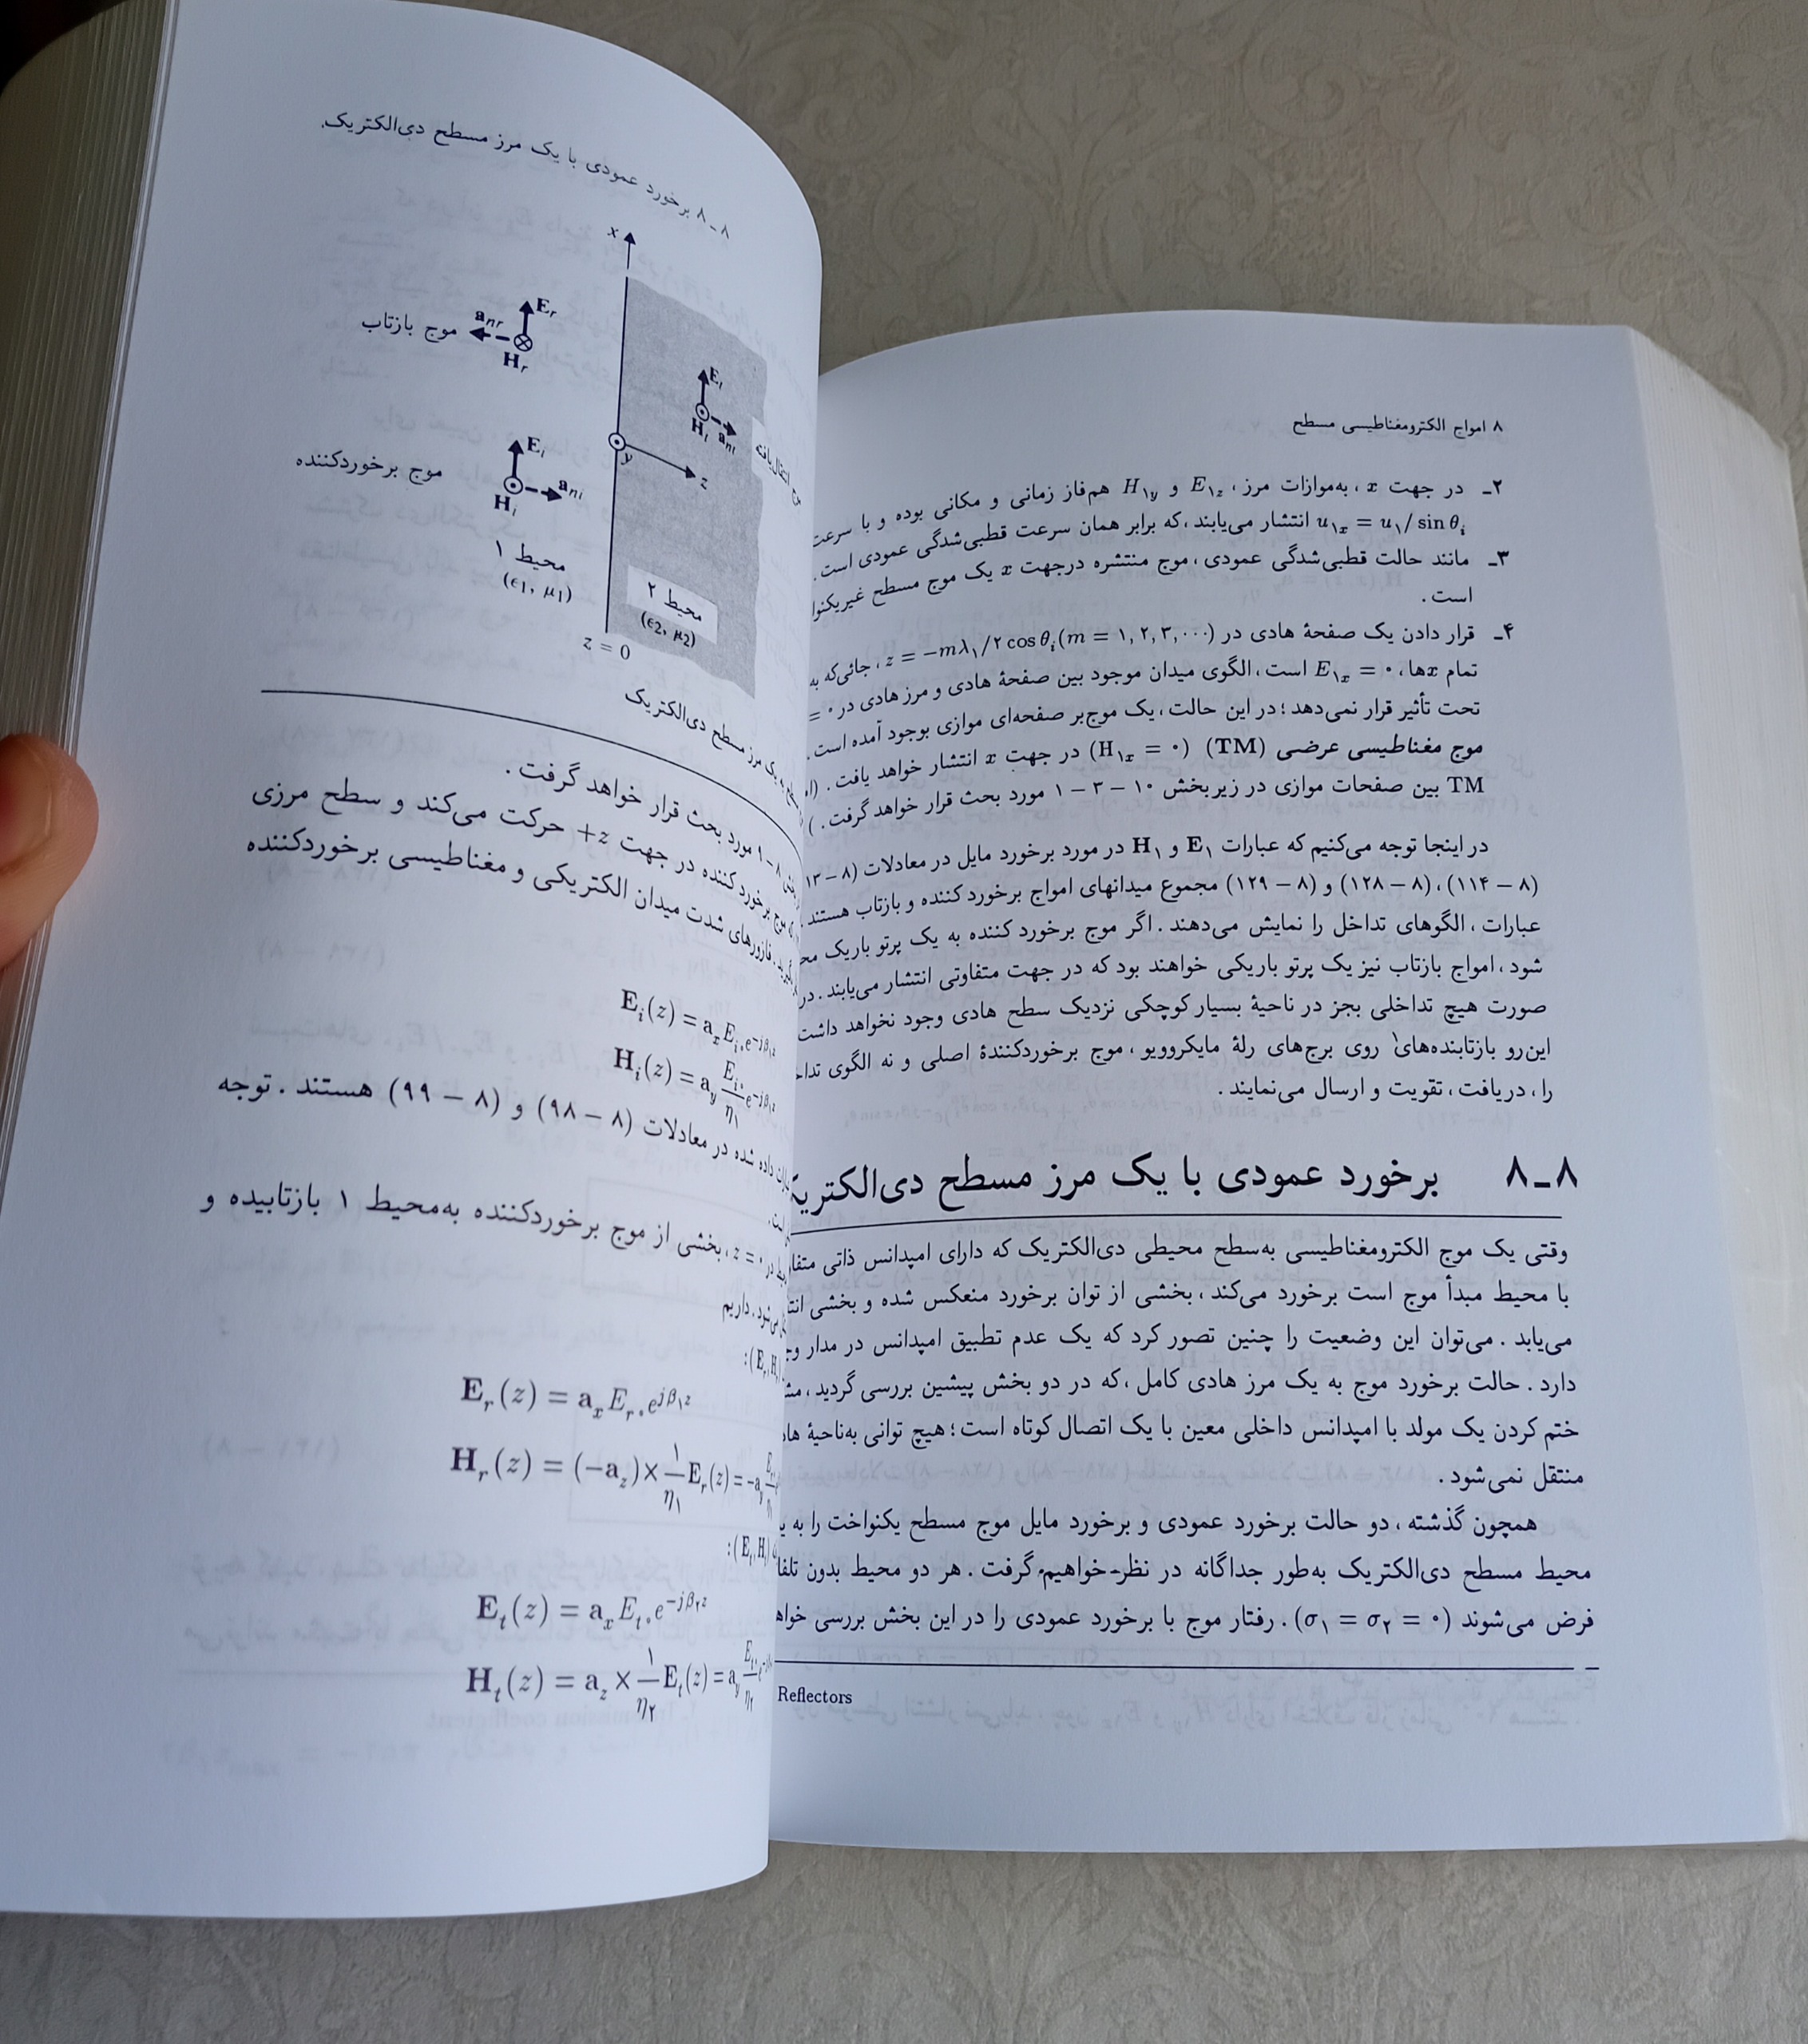 ۸ امواج الکترومغناطیسی مسطح
۲ـ در جهت x ، به‌موازات مرز، E₁z و H₁y هم‌فاز زمانی و مکانی بوده و با سرعت
u₁x = u₁/ sin θi انتشار می‌یابند، که برابر همان سرعت قطبی‌شدگی عمودی است .
۳ـ مانند حالت قطبی‌شدگی عمودی، موج منتشره درجهت x یک موج مسطح غیریکنوا
است .
۴ـ قرار دادن یک صفحهٔ هادی در z = −mλ₁/۲ cos θi (m = ۱, ۲, ۳, ···) ، جائی‌که به
تمام xها، E₁x = ۰ است، الگوی میدان موجود بین صفحهٔ هادی و مرز هادی در ۰ =
تحت تأثیر قرار نمی‌دهد؛ در این حالت، یک موج‌بر صفحه‌ای موازی بوجود آمده است .
موج مغناطیسی عرضی (TM) (H₁x = ۰) در جهت x انتشار خواهد یافت .
TM بین صفحات موازی در زیربخش ۱۰ − ۳ − ۱ مورد بحث قرار خواهد گرفت . )
در اینجا توجه می‌کنیم که عبارات E₁ و H₁ در مورد برخورد مایل در معادلات (۸ − ۱۳
(۸ − ۱۱۴)، (۸ − ۱۲۸) و (۸ − ۱۲۹) مجموع میدانهای امواج برخورد کننده و بازتاب هستند .
عبارات، الگوهای تداخل را نمایش می‌دهند . اگر موج برخورد کننده به یک پرتو باریک مح
شود، امواج بازتاب نیز یک پرتو باریکی خواهند بود که در جهت متفاوتی انتشار می‌یابند . در
صورت هیچ تداخلی بجز در ناحیهٔ بسیار کوچکی نزدیک سطح هادی وجود نخواهد داشت
این‌رو بازتابنده‌های¹ روی برج‌های رلهٔ مایکروویو، موج برخوردکنندهٔ اصلی و نه الگوی تداخ
را، دریافت، تقویت و ارسال می‌نمایند .
۸ـ۸ برخورد عمودی با یک مرز مسطح دی‌الکتریک
وقتی یک موج الکترومغناطیسی به‌سطح محیطی دی‌الکتریک که دارای امپدانس ذاتی متفا
با محیط مبدأ موج است برخورد می‌کند، بخشی از توان برخورد منعکس شده و بخشی انتق
می‌یابد . می‌توان این وضعیت را چنین تصور کرد که یک عدم تطبیق امپدانس در مدار وج
دارد . حالت برخورد موج به یک مرز هادی کامل، که در دو بخش پیشین بررسی گردید، مثل
ختم کردن یک مولد با امپدانس داخلی معین با یک اتصال کوتاه است؛ هیچ توانی به‌ناحیهٔ هاد
منتقل نمی‌شود .
همچون گذشته، دو حالت برخورد عمودی و برخورد مایل موج مسطح یکنواخت را به ی
محیط مسطح دی‌الکتریک به‌طور جداگانه در نظر خواهیم گرفت . هر دو محیط بدون تلفا
فرض می‌شوند (σ₁ = σ₂ = ۰) . رفتار موج با برخورد عمودی را در این بخش بررسی خواه
Reflectors
۸ـ۸ برخورد عمودی با یک مرز مسطح دی‌الکتریک
x
Er
anr
موج بازتاب
Hr
Et
Ht ant
انتقال‌یافته
Ei
موج برخوردکننده
ani
Hi
y
z
محیط ۱
(ϵ1, μ1)
محیط ۲
(ϵ2, μ2)
z = 0
یک مرز مسطح دی‌الکتریک
۸−۱ مورد بحث قرار خواهد گرفت .
موج برخورد کننده در جهت z+ حرکت می‌کند و سطح مرزی
فازورهای شدت میدان الکتریکی و مغناطیسی برخوردکننده
Ei(z) = ax Ei۰ e^−jβ₁z
Hi(z) = ay Ei۰/η₁ e^−jβ₁z
داده شده در معادلات (۸ − ۹۸) و (۸ − ۹۹) هستند . توجه
در z = ۰ ، بخشی از موج برخوردکننده به‌محیط ۱ بازتابیده و
می‌شود . داریم
(Er, Hr) :
Er(z) = ax Er۰ e^jβ₁z
Hr(z) = (−az) × ۱/η₁ Er(z) = −ay
(Et, Ht) :
Et(z) = ax Et۰ e^−jβ₂z
Ht(z) = az × ۱/η₂ Et(z) = ay Et۰/η₂